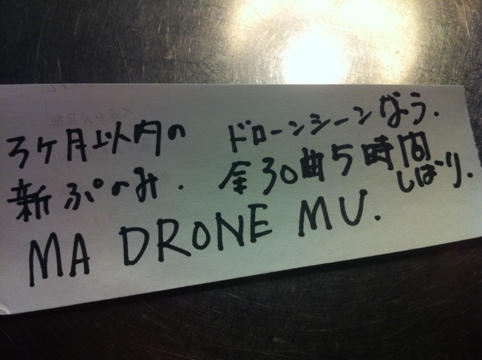 3ヶ月以内の ドローンシーンなう.
新ぷのみ. 全30曲5時間しばり.
MA DRONE MU.